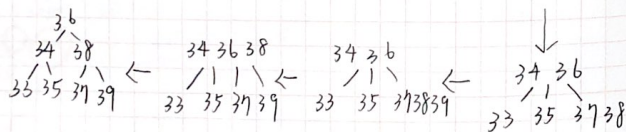 36
34 38
33 35 37 39
←
34 36 38
33 35 37 39
←
34 36
33 35 373839
←
↓
34 36
33 35 3738